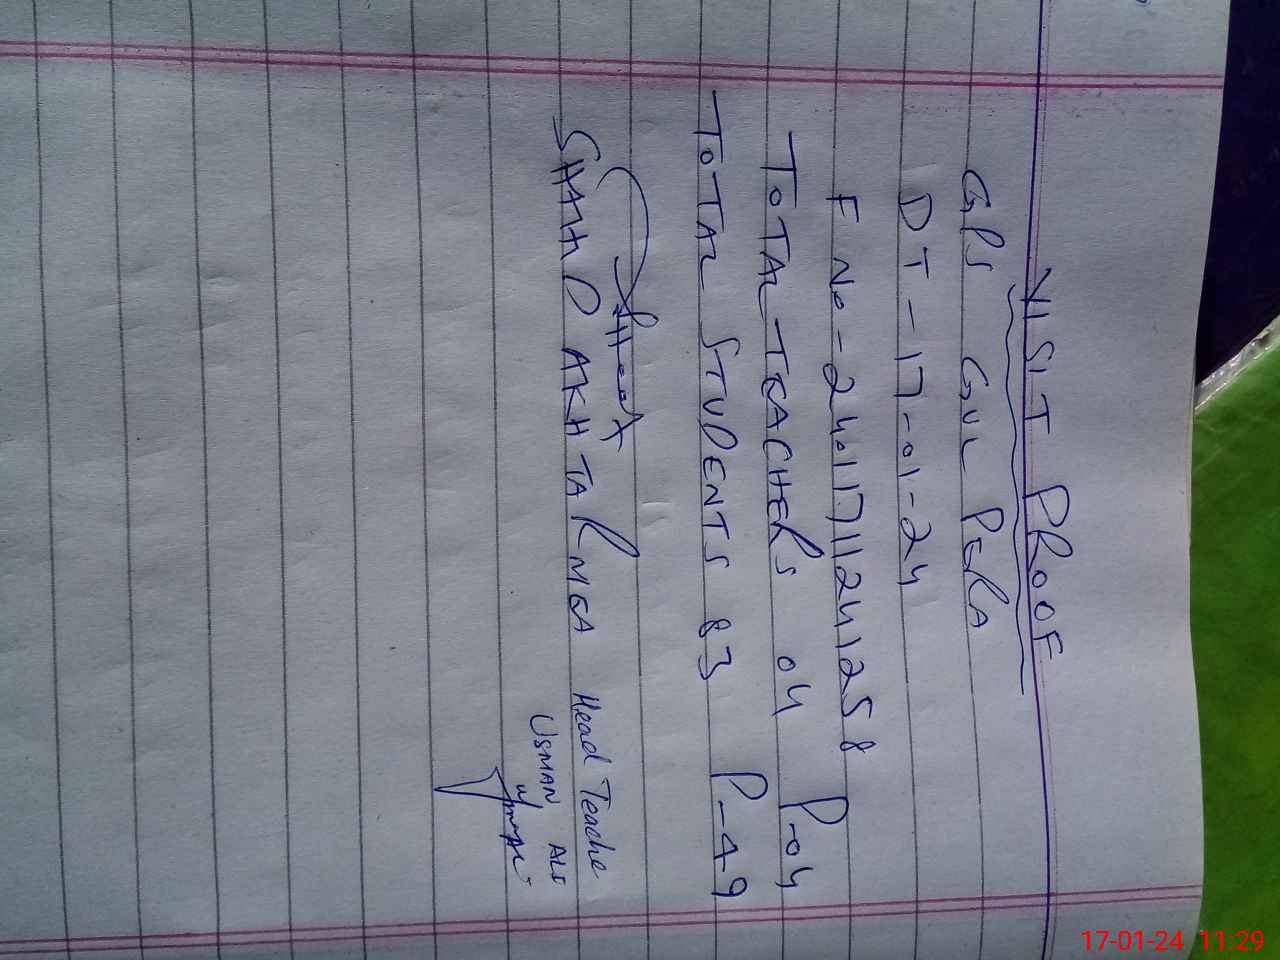 VISIT PROOF
GPS GUL PERA
DT-17-01-24
F No-24011711241258
TOTAL TEACHERS 04 P-04
TOTAL STUDENTS 83 P-49
SHAHID AKHTAR MEA
Head Teache
USMAN ALI
17-01-24 11:29